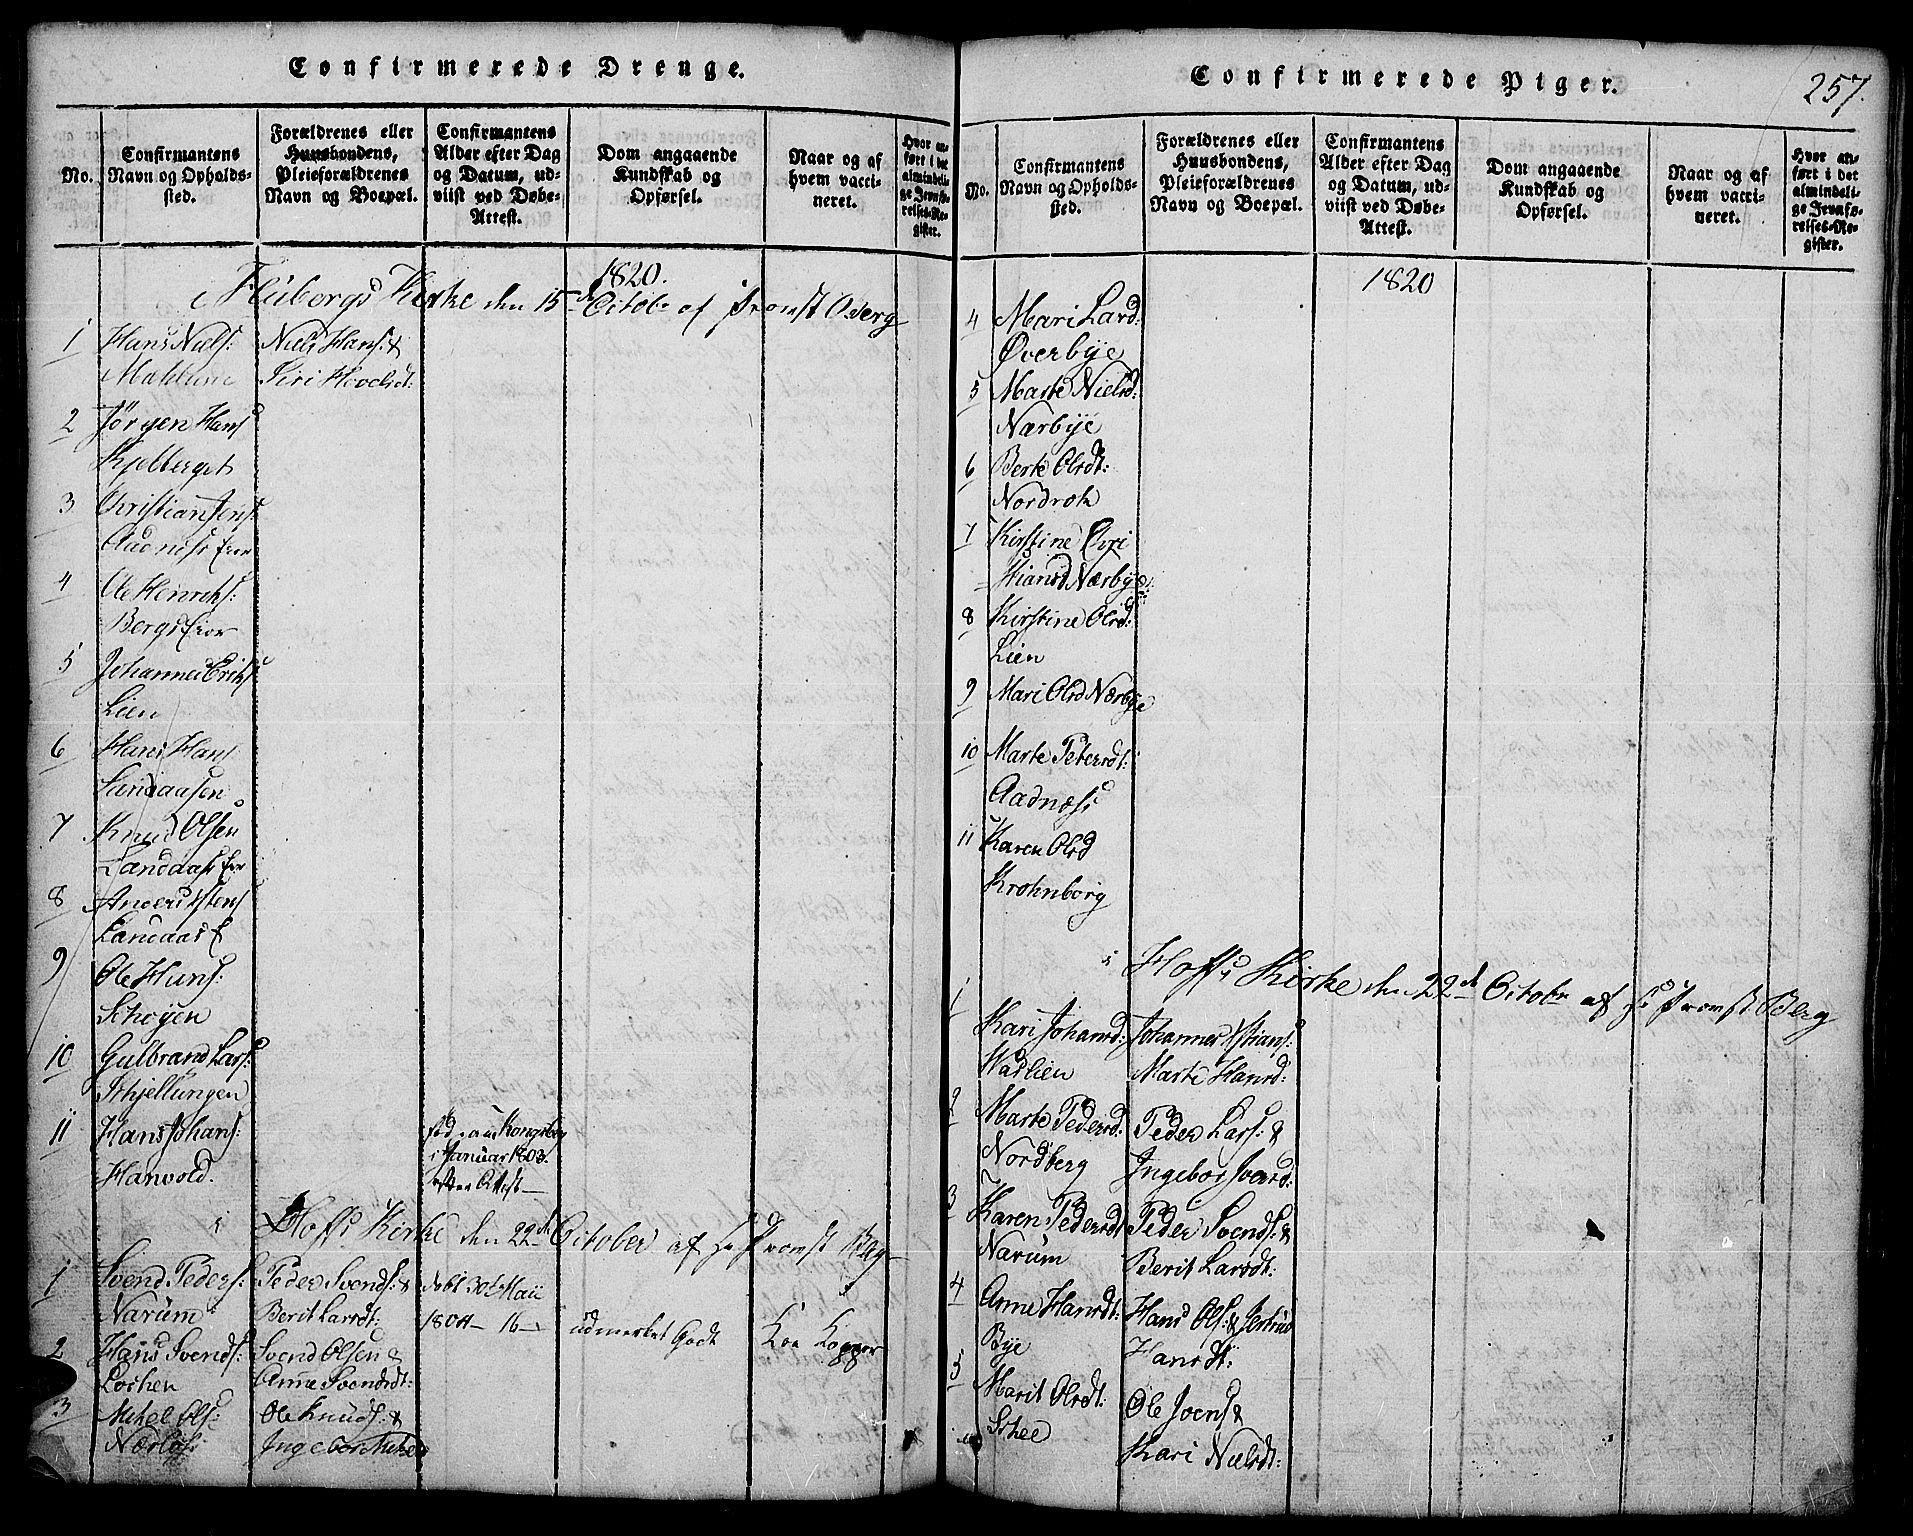 Confirmerede Drenge.
No.
Confirmantens
Navn og Opholds-
sted.
Forældrenes eller
Huusbondens,
Pleieforældrenes
Navn og Boepæl.
Confirmantens
Alder efter Dag
og Datum, ud-
viist ved Døbe-
Attest.
Dom angaaende
Kundskab og
Opførsel.
Naar og af
hvem vacci-
neret.
Hvor an-
ført i det
almindeli-
ge Jevnfø-
relses-Re-
gister.
1820.
i Flubergs Kirke den 15de Octobr af Provst Berg
1 Hans Niels: Niels Hans: &
Mahlum Siri Hovelsdt:
2 Jørgen Hans
Kjelberget
3 Christian Jens:
Aadnæs
4 Ole Henrichs:
Bergs
5 Johannes Erichs:
Lien
6 Hans Hans
Landaasen
7 Knud Olsen
Landaas
8 Anders
Landaas
9 Ole Hans:
Schøyen
10 Gulbrand Lars:
Schjellungen
11 Hans Johans: fød paa Kongsberg
Harvold. i Januar 1803.
efter Attest
i Hoffs Kirke den 22de October af Hr Provst Berg
1 Svend Peders: Peder Svends: & døbt 30te Maii
Narum Berit Larsdt: 1804 16 udmerket Godt Koe Kopper
2 Hans Svends: Svend Olsen &
Lochen Anne Svendsdt:
3 Mikel Ols: Ole Knuds: &
Ingebor
Confirmerede Piger.
257.
No.
Confirmantens
Navn og Opholds-
sted.
Forældrenes eller
Huusbondens,
Pleieforældrenes
Navn og Boepæl.
Confirmantens
Alder efter Dag
og Datum, ud-
viist ved Døbe-
Attest.
Dom angaaende
Kundskab og
Opførsel.
Naar og af
hvem vacci-
neret.
Hvor an-
ført i det
almindeli-
ge Jevnfø-
relses-Re-
gister.
1820
4 Mari Larsd:
Øverbye
5 Marte Nielsd:
Nærbye
6 Berte Olsdt:
Nordroh
7 Kirstine
Nærbye
8 Kirstine Olsd:
Lien
9 Mari Olsd Nærbye
10 Marte Petersdt:
Aadnæss
11 Karen Olsd
Krohnborg
i Hoffs Kirke den 22de Octobr af Hr Provst Berg
1 Kari Johansd: Johannes
Wadlien Marte Hansd:
2 Marte Pedersd: Peder Lars: &
Nordberg Ingebor Svendsd:
3 Karen Pedersdt Peder Svends: &
Narum Berit Larsdt:
4 Anne Hansdt: Hans Ols: & Jertrud
Bye Hansdt:
5 Marit Olsdt: Ole Joens &
Schee Kari Nielsdt: